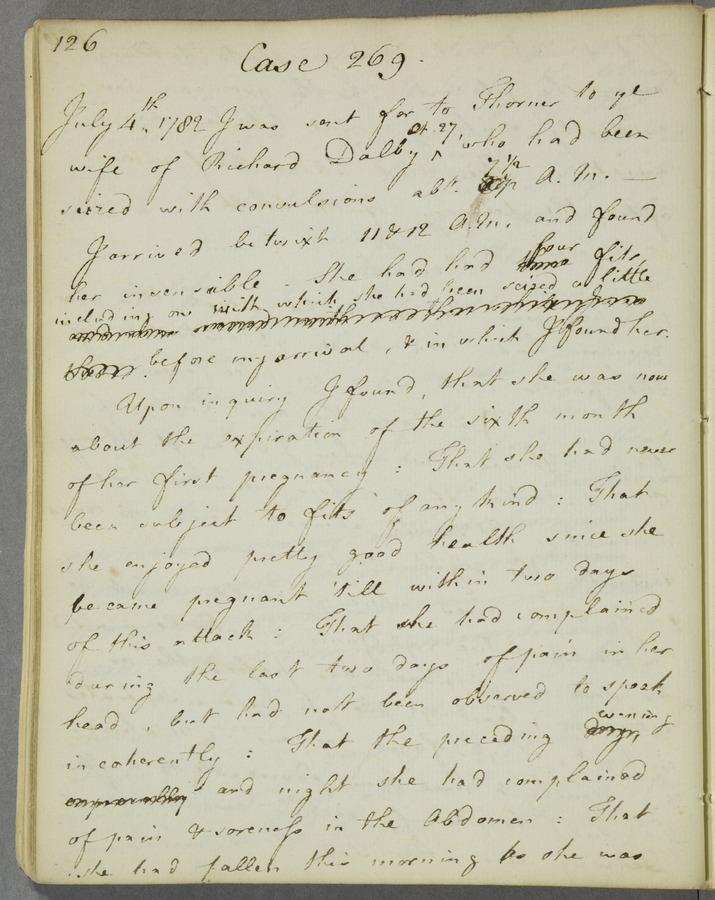 126
Case 269.
July 4th. 1782 I was sent for to Thorner to ye
wife of Richard Dalby, ^ Æt. 27 who had been
seized with convulsions abt. 7 1/2 A.M. —
I arrived betwixt 11 & 12 A.M. and found
her insensible. She had had three four fits,
including one with which she had been seized a little
before my arrival, & in which I found her.
Upon inquiry I found, that she was now
about the expiration of the sixth month
of her first pregnancy: That she had never
been subject to fits of any kind: That
she enjoyed pretty good health since she
became pregnant 'till within two days
of this attack: That she had complained
during the last two days of pain in her
head, but had not been observed to speak
incoherently: That the preceding day, evening
especially and night she had complained
of pain & soreness in the Abdomen: That
she had fallen this morning as she was